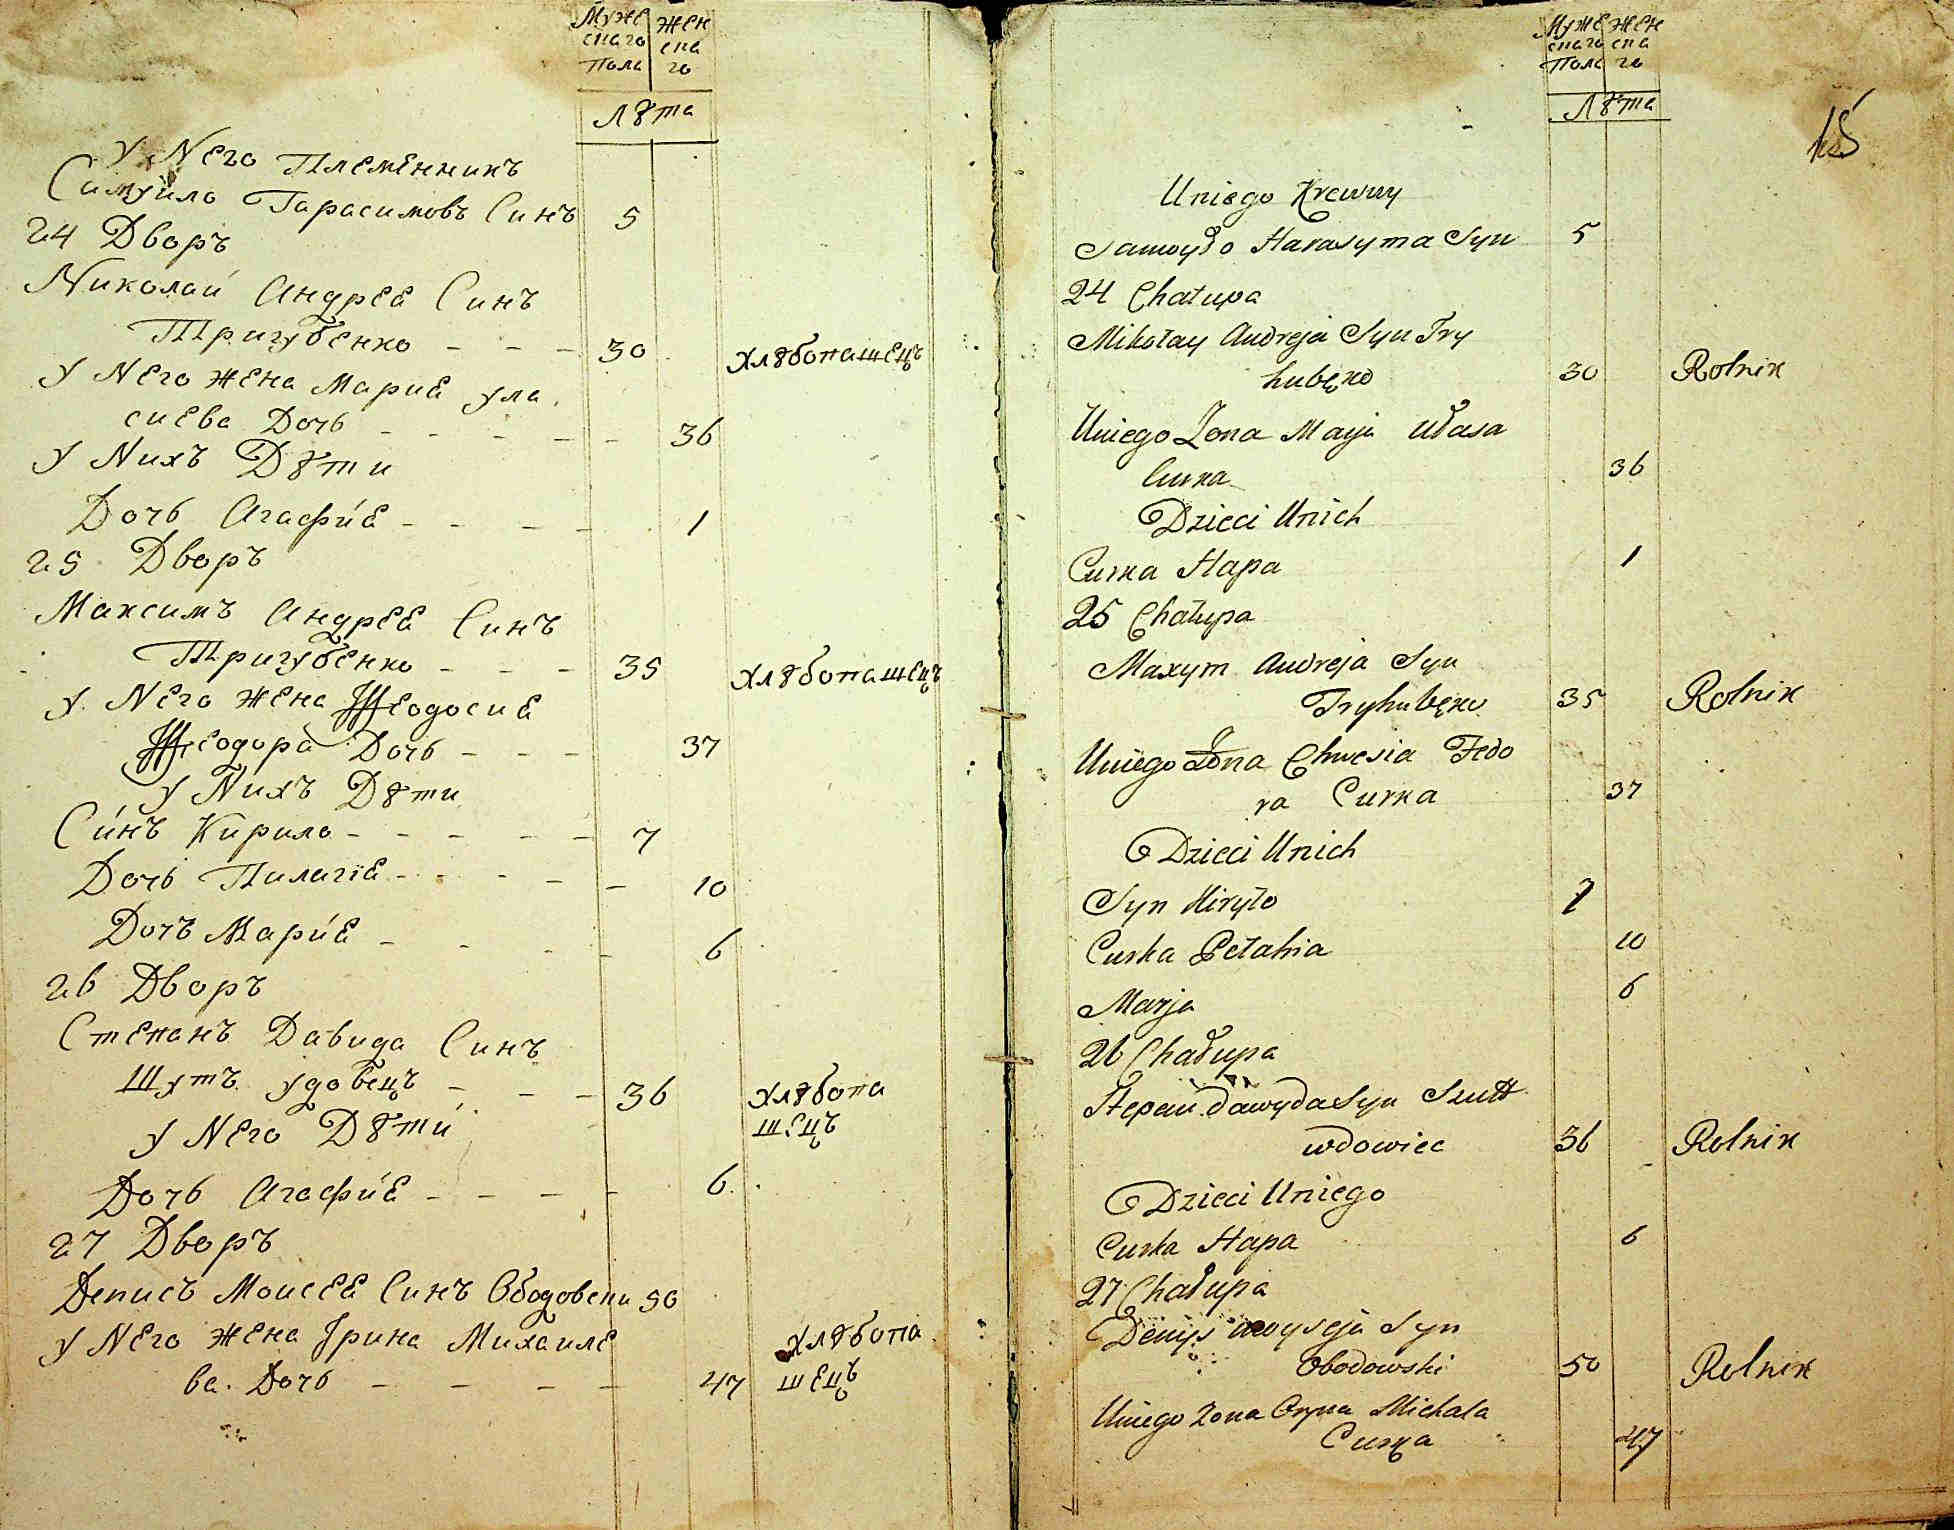 Муже Жен
скаго ска
Пола го
Лѣта
У Него Племенникъ
Самуйло Гарасимовъ Синъ 5
24 Дворъ
Николай Андрея Синъ
Тригубенко - - - 30 Хлѣбопашецъ
У Него жена Мария Ула
сиева Дочь - - - - - 36
У Нихъ Дѣти
Дочь Агафия - - - - 1
25 Дворъ
Максимъ Андрея Синъ
Тригубенко - - - 35 Хлѣбопашецъ
У Него жена Феодосия
Феодора Дочь - - - 37
У Нихъ Дѣти
Синъ Кирило - - - - - 7
Дочь Пилагія - - - - - 10
Дочъ Мария - - - - 6
26 Дворъ
Степанъ Давида Синъ
Шутъ удовецъ - - - 36 Хлѣбопа
шецъ
У Него Дѣти
Дочь Агафия - - - - 6
27 Дворъ
Денисъ Моисея Синъ Ободовски 50
У Него жена Ірина Михаиле
ва Дочь - - - - 47
Хлѣбопа
шецъ
Муже Жен
скаго ска
Пола го
Лѣта
15
Uniego Krewny
Samoyło Harasyma Syn 5
24 Chałupa
Mikołay Andreja Syn Try
hubęko 30 Rolnik
Uniego Zona Marja Ułasa
Curka 36
Dzieci Unich
Curka Hapa 1
25 Chałupa
Maxym Andreja Syn
Tryhubęko 35 Rolnik
Uniego Zona Chwesia Fedo
ra Curka 37
Dzieci Unich
Syn Kiryło 7
Curka Pełahia 10
Marja 6
26 Chałupa
Stepan Dawyda Syn Szutt
wdowiec 36 Rolnik
Dzieci Uniego
Curka Hapa 6
27 Chałupa
Denys Moyseja Syn
Obodowski 50 Rolnik
Uniego Zona Oryna Michała
Curka 47